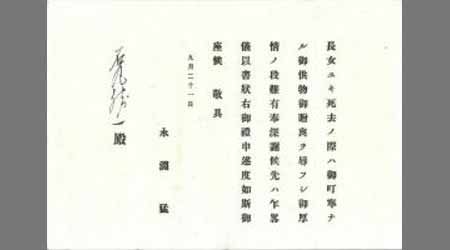 長女ユキ死去ノ際ハ御叮寧ナ
ル御供物御贈與ヲ辱フシ御厚
情ノ段難有奉深謝候先ハ乍畧
儀以書狀右御禮申述度如斯御
座候 敬具
九月二十一日
永淵猛
殿